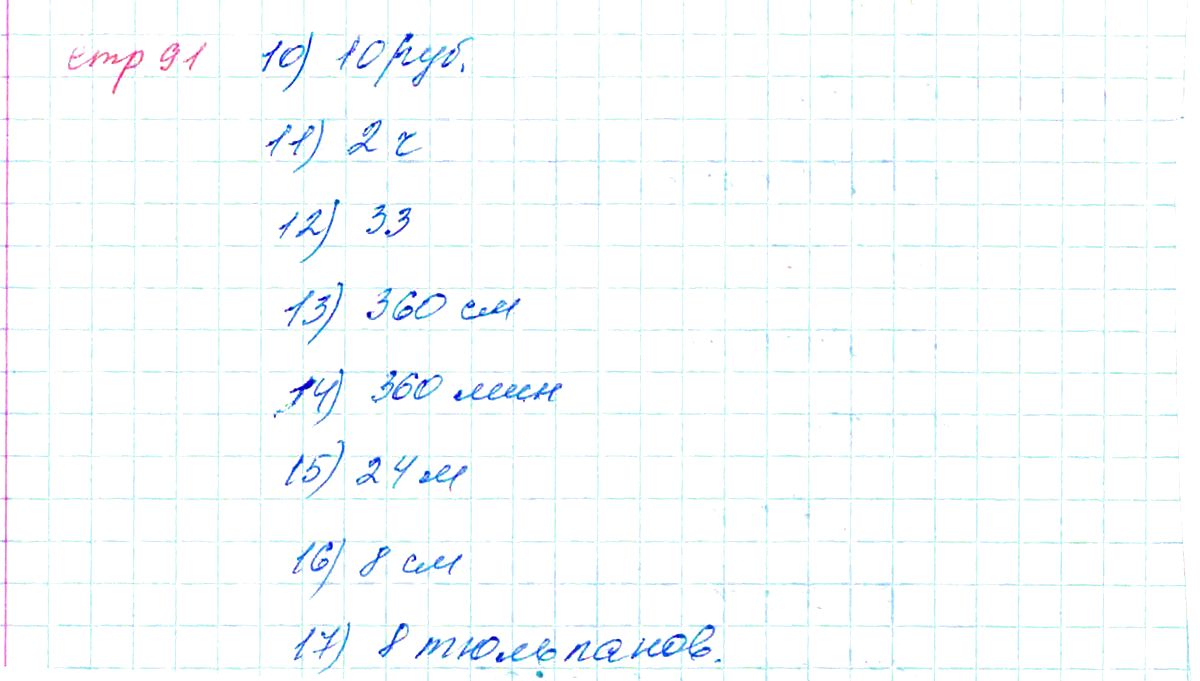 стр 91 10) 10 руб.
11) 2 ч
12) 33
13) 360 см
14) 360 мин
15) 24 м
16) 8 см
17) 8 тюльпанов.